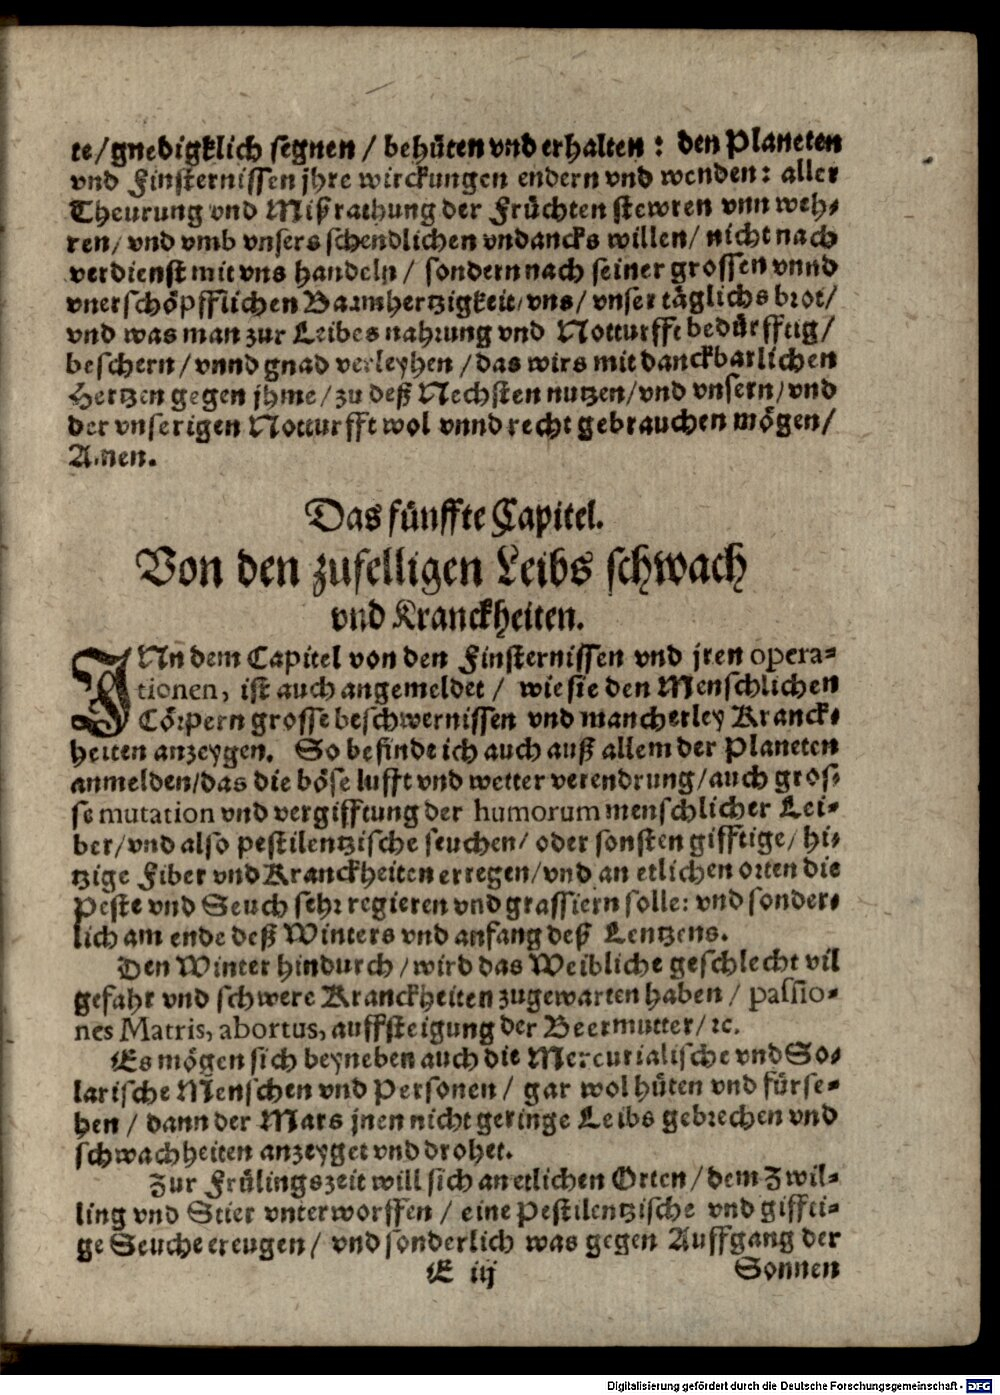 te/gnedigklich segnen / behüten vnd erhalten : den Planeten
vnd Finsternissen jhre wirckungen endern vnd wenden : aller
Theurung vnd Mißrathung der Früchten stewren vnn weh-
ren/ vnd vmb vnsers schendlichen vndancks willen/ nicht nach
verdienst mit vns handeln / sondern nach seiner grossen vnnd
vnerschöpfflichen Barmhertzigkeit/ vns/ vnser täglichs brot/
vnd was man zur Leibes nahrung vnd Notturfft bedürfftig/
beschern/ vnnd gnad verleyhen / das wirs mit danckbarlichen
Hertzen gegen jhme / zu deß Nechsten nutzen/vnd vnsern/vnd
der vnserigen Notturfft wol vnnd recht gebrauchen mögen/
Amen.
Das fünffte Capitel.
Von den zufelligen Leibs schwach
vnd Kranckheiten.
JNn dem Capitel von den Finsternissen vnd jren opera-
tionen, ist auch angemeldet / wie sie den Menschlichen
Cörpern grosse beschwernissen vnd mancherley Kranck-
heiten anzeygen. So befinde ich auch auß allem der Planeten
anmelden/das die böse lufft vnd wetter verendrung/auch gros-
se mutation vnd vergifftung der humorum menschlicher Lei-
ber/vnd also pestilentzische seuchen/ oder sonsten gifftige/ hi-
tzige Fiber vnd Kranckheiten erregen/vnd an etlichen orten die
Peste vnd Seuch sehr regieren vnd grassiern solle: vnd sonder-
lich am ende deß Winters vnd anfang deß Lentzens.
Den Winter hindurch / wird das Weibliche geschlecht vil
gefahr vnd schwere Kranckheiten zugewarten haben / passio-
nes Matris, abortus, auffsteigung der Beermutter/ ꝛc.
Es mögen sich beyneben auch die Mercurialische vnd So-
larische Menschen vnd Personen / gar wol hüten vnd fürse-
hen / dann der Mars jnen nicht geringe Leibs gebrechen vnd
schwachheiten anzeyget vnd drohet.
Zur Frülingszeit will sich an etlichen Orten / dem Zwil-
ling vnd Stier vnterworffen / eine Pestilentzische vnd giffti-
ge Seuche ereugen / vnd sonderlich was gegen Auffgang der
E iij Sonnen
Digitalisierung gefördert durch die Deutsche Forschungsgemeinschaft - DFG